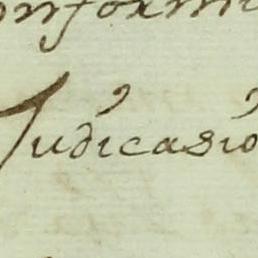 onformi
Judicasio